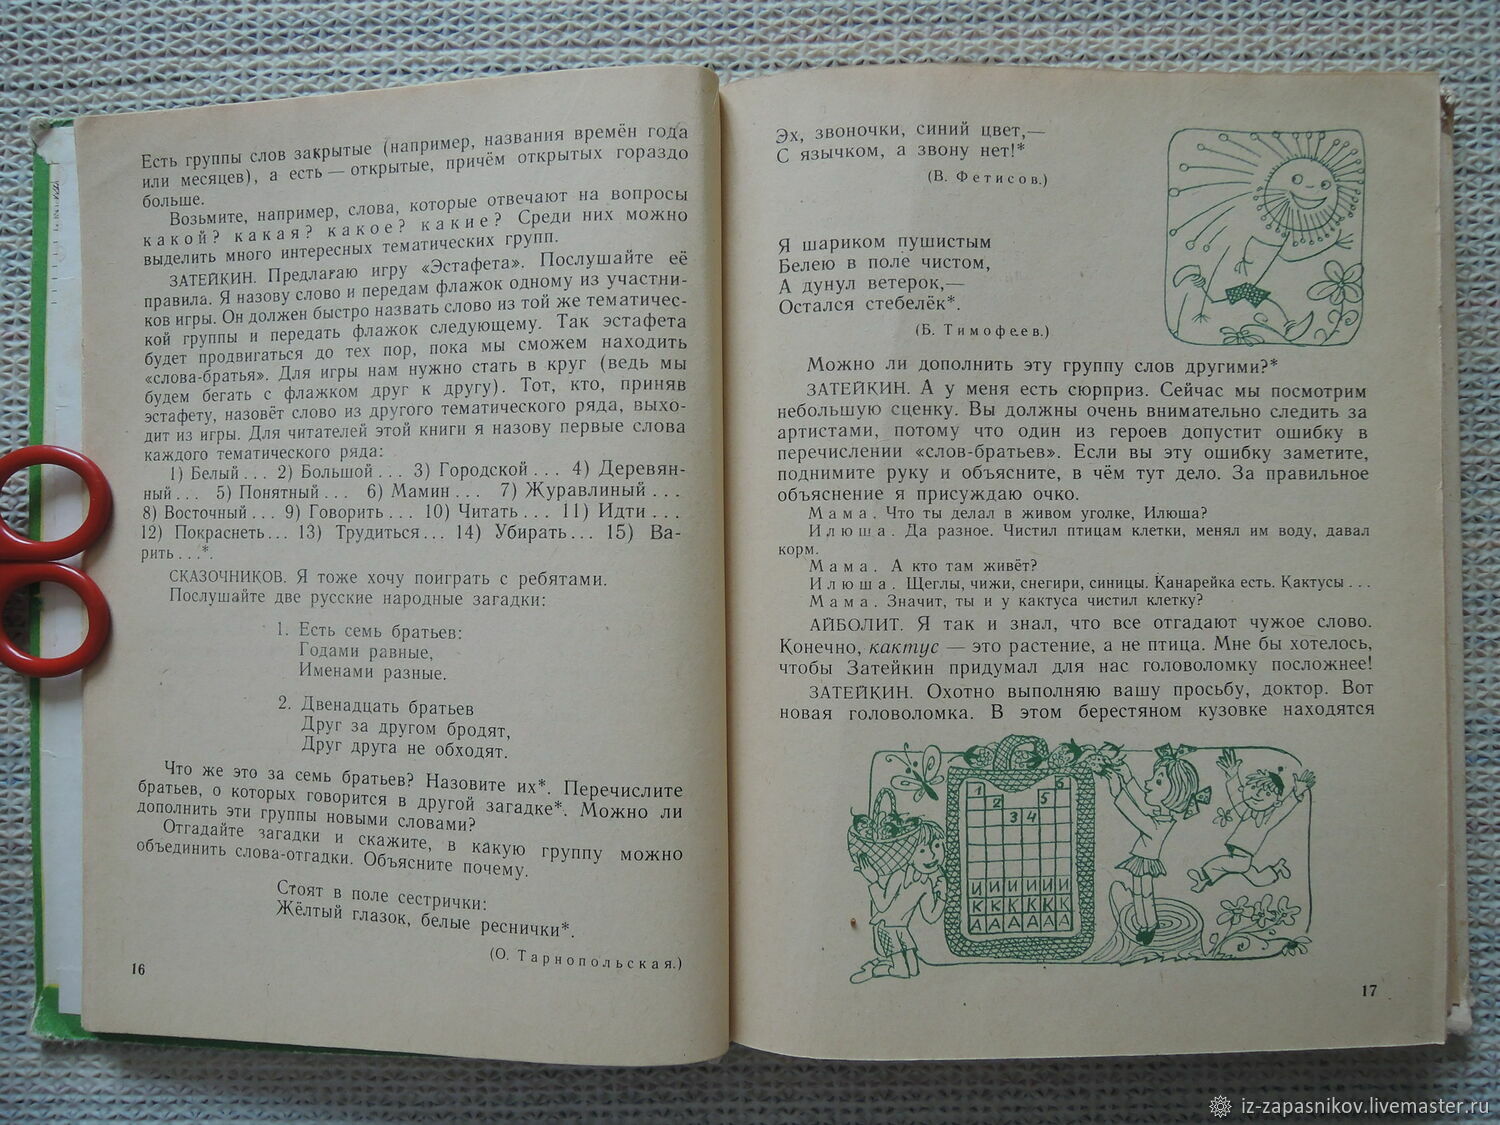 Есть группы слов закрытые (например, названия времён года
или месяцев), а есть — открытые, причём открытых гораздо
больше.
Возьмите, например, слова, которые отвечают на вопросы
какой? какая? какое? какие? Среди них можно
выделить много интересных тематических групп.
ЗАТЕЙКИН. Предлагаю игру «Эстафета». Послушайте её
правила. Я назову слово и передам флажок одному из участни-
ков игры. Он должен быстро назвать слово из той же тематичес-
кой группы и передать флажок следующему. Так эстафета
будет продвигаться до тех пор, пока мы сможем находить
«слова-братья». Для игры нам нужно стать в круг (ведь мы
будем бегать с флажком друг к другу). Тот, кто, приняв
эстафету, назовёт слово из другого тематического ряда, выхо-
дит из игры. Для читателей этой книги я назову первые слова
каждого тематического ряда:
1) Белый... 2) Большой... 3) Городской... 4) Деревян-
ный... 5) Понятный... 6) Мамин... 7) Журавлиный...
8) Восточный... 9) Говорить... 10) Читать... 11) Идти...
12) Покраснеть... 13) Трудиться... 14) Убирать... 15) Ва-
рить...*.
СКАЗОЧНИКОВ. Я тоже хочу поиграть с ребятами.
Послушайте две русские народные загадки:
1. Есть семь братьев:
Годами равные,
Именами разные.
2. Двенадцать братьев
Друг за другом бродят,
Друг друга не обходят.
Что же это за семь братьев? Назовите их*. Перечислите
братьев, о которых говорится в другой загадке*. Можно ли
дополнить эти группы новыми словами?
Отгадайте загадки и скажите, в какую группу можно
объединить слова-отгадки. Объясните почему.
Стоят в поле сестрички:
Жёлтый глазок, белые реснички*.
(О. Тарнопольская.)
16
Эх, звоночки, синий цвет,—
С язычком, а звону нет!*
(В. Фетисов.)
Я шариком пушистым
Белею в поле чистом,
А дунул ветерок,—
Остался стебелёк*.
(Б. Тимофеев.)
Можно ли дополнить эту группу слов другими?*
ЗАТЕЙКИН. А у меня есть сюрприз. Сейчас мы посмотрим
небольшую сценку. Вы должны очень внимательно следить за
артистами, потому что один из героев допустит ошибку в
перечислении «слов-братьев». Если вы эту ошибку заметите,
поднимите руку и объясните, в чём тут дело. За правильное
объяснение я присуждаю очко.
Мама. Что ты делал в живом уголке, Илюша?
Илюша. Да разное. Чистил птицам клетки, менял им воду, давал
корм.
Мама. А кто там живёт?
Илюша. Щеглы, чижи, снегири, синицы. Канарейка есть. Кактусы...
Мама. Значит, ты и у кактуса чистил клетку?
АЙБОЛИТ. Я так и знал, что все отгадают чужое слово.
Конечно, кактус — это растение, а не птица. Мне бы хотелось,
чтобы Затейкин придумал для нас головоломку посложнее!
ЗАТЕЙКИН. Охотно выполняю вашу просьбу, доктор. Вот
новая головоломка. В этом берестяном кузовке находятся
1 2 3 4 5 6
И И И И И И
К К К К К К
А А А А А А
17
iz-zapasnikov.livemaster.ru